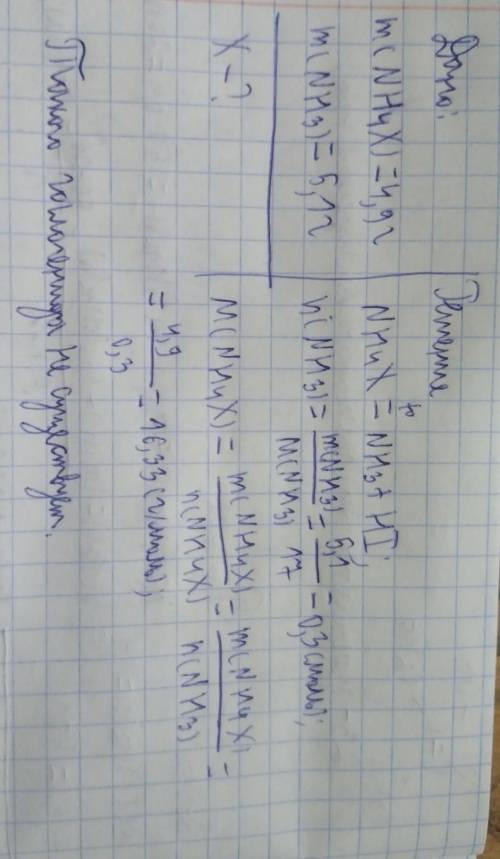 Дано:
m(NH4X)=4,9г
m(NH3)=5,1г
X-?
Решение
NH4X = t° NH3 + HI;
n(NH3) = m(NH3) / M(NH3) = 5,1 / 17 = 0,3 (моль);
M(NH4X) = m(NH4X) / n(NH4X) = m(NH4X) / n(NH3) =
= 4,9 / 0,3 = 16,33 (г/моль);
Такого галогенида не существует.